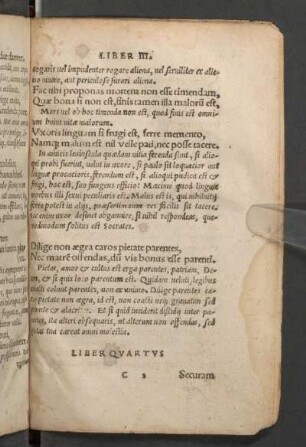 LIBER III.
rogaris uel impudenter rogare aliena, uel seruiliter ex alie
no uiuere, aut periculose furari aliena.
Fac tibi proponas mortem non esse timendam,
Quæ bona si non est, finis tamen illa malorū est.
Mors uel ob hoc timenda non est, quod finis est omni-
um huius uitæ malorum.
Vxoris linguam si frugi est, ferre memento,
Namq; malum est nil velle pati, nec posse tacere.
In amicis leuiuscula quædam uitia ferenda sunt, si alio-
qui probi fuerint, uelut in uxore, si paulo sit loquacior aut
linguæ procacioris, ferendum est, si alioqui pudica est &
frugi, hoc est, suo fungens officio: Maxime quod linguæ
morbus illi sexui peculiaris est. Malus est is, qui nihil
ferre potest in alijs, præsertim cum uel facile sit tacere.
enim uxor desinet obgannire, si nihil respondeas, que-
admodum solitus est Socrates.
Dilige non ægra caros pietate parentes,
Nec matrē offendas, dū vis bonus esse parenti.
Pietas, amor & cultus est erga parentes, patriam, De-
um, & si quis loco parentum est. Quidam uelut legibus
coacti colunt parentes, non ex animo. Dilige parentes
pietate non ægra, id est, non coacta nec grauatim sed
& alacri. Et si quid inciderit dissidij inter pa-
rentes, ita alteri obsequaris, ut alterum non offendas, sed
tua careat omni molestia.
LIBER QVARTVS
C 2 Securam